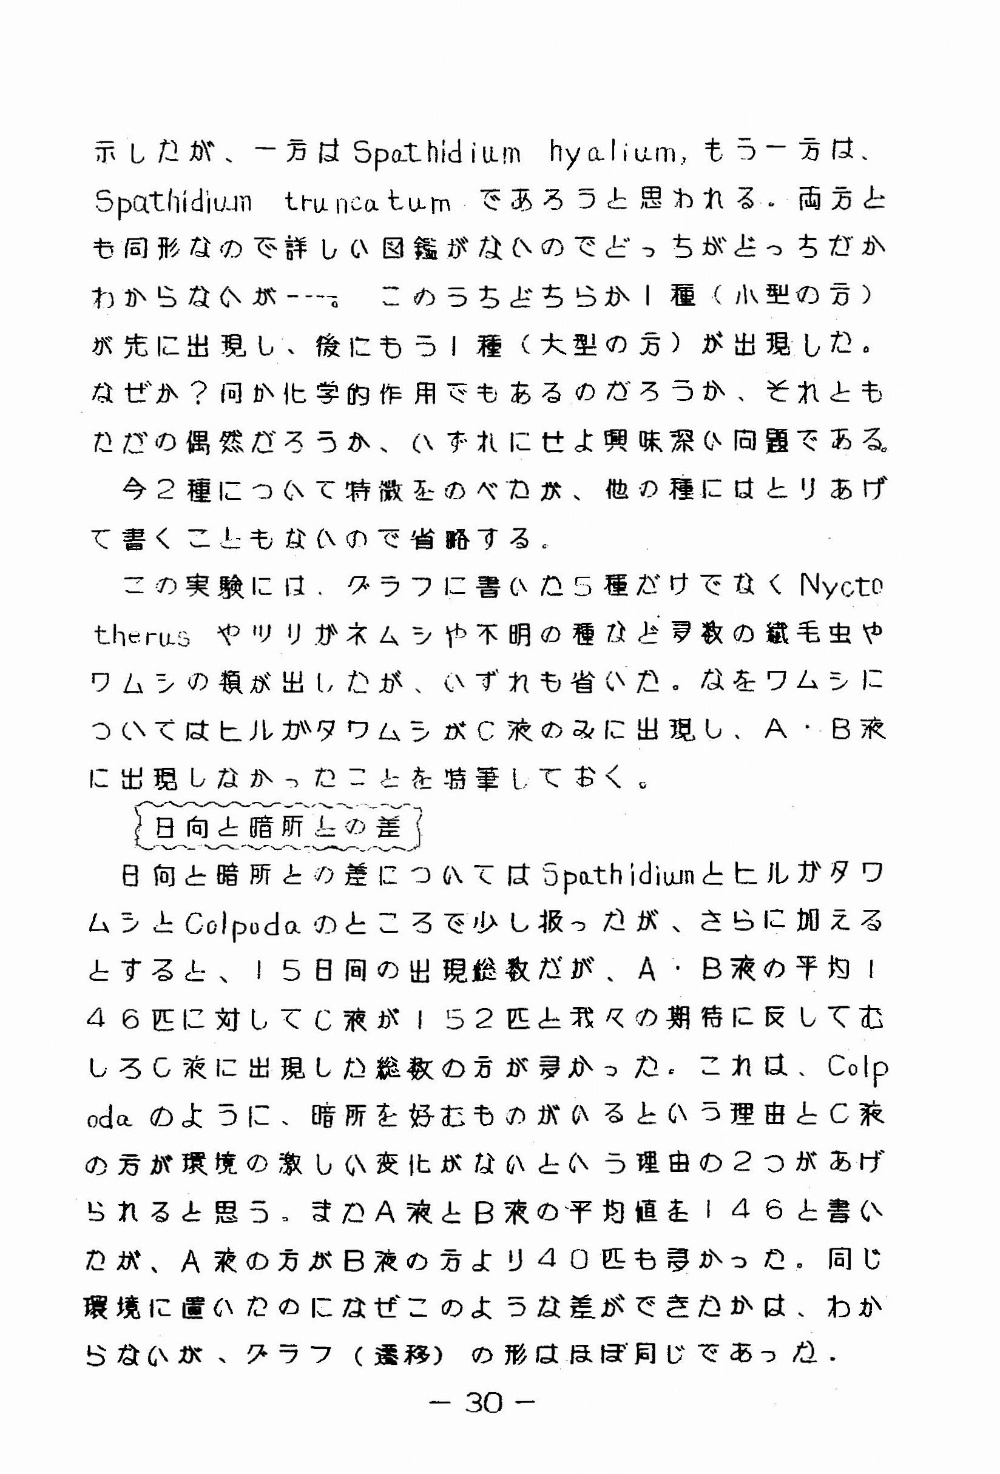 示したが、一方はSpathidium hyalium,もう一方は、
Spathidium truncatumであろうと思われる。両方と
も同形なので詳しい図鑑がないのでどっちがどっちだか
わからないが---。このうちどちらか1種（小型の方）
が先に出現し、後にもう1種（大型の方）が出現した。
なぜか?何か化学的作用でもあるのだろうか、それとも
ただの偶然だろうか、いずれにせよ興味深い問題である。
今2種について特徴をのべたが、他の種にはとりあげ
て書くこともないので省略する。
この実験には、グラフに書いた5種だけでなくNycto
therusやツリガネムシや不明の種など多数の繊毛虫や
ワムシの類が出したが、いずれも省いた。なをワムシに
ついてはヒルガタワムシがC液のみに出現し、A・B液
に出現しなかったことを特筆しておく。
日向と暗所との差
日向と暗所との差についてはSpathidiumとヒルガタワ
ムシとColpodaのところで少し扱ったが、さらに加える
とすると、15日間の出現総数だが、A・B液の平均1
46匹に対してC液が152匹と我々の期待に反してむ
しろC液に出現した総数の方が多かった。これは、Colp
odaのように、暗所を好むものがいるという理由とC液
の方が環境の激しい変化がないという理由の2つがあげ
られると思う。またA液とB液の平均値を146と書い
たが、A液の方がB液の方より40匹も多かった。同じ
環境に置いたのになぜこのような差ができたかは、わか
らないが、グラフ（遷移）の形はほぼ同じであった.
－30－